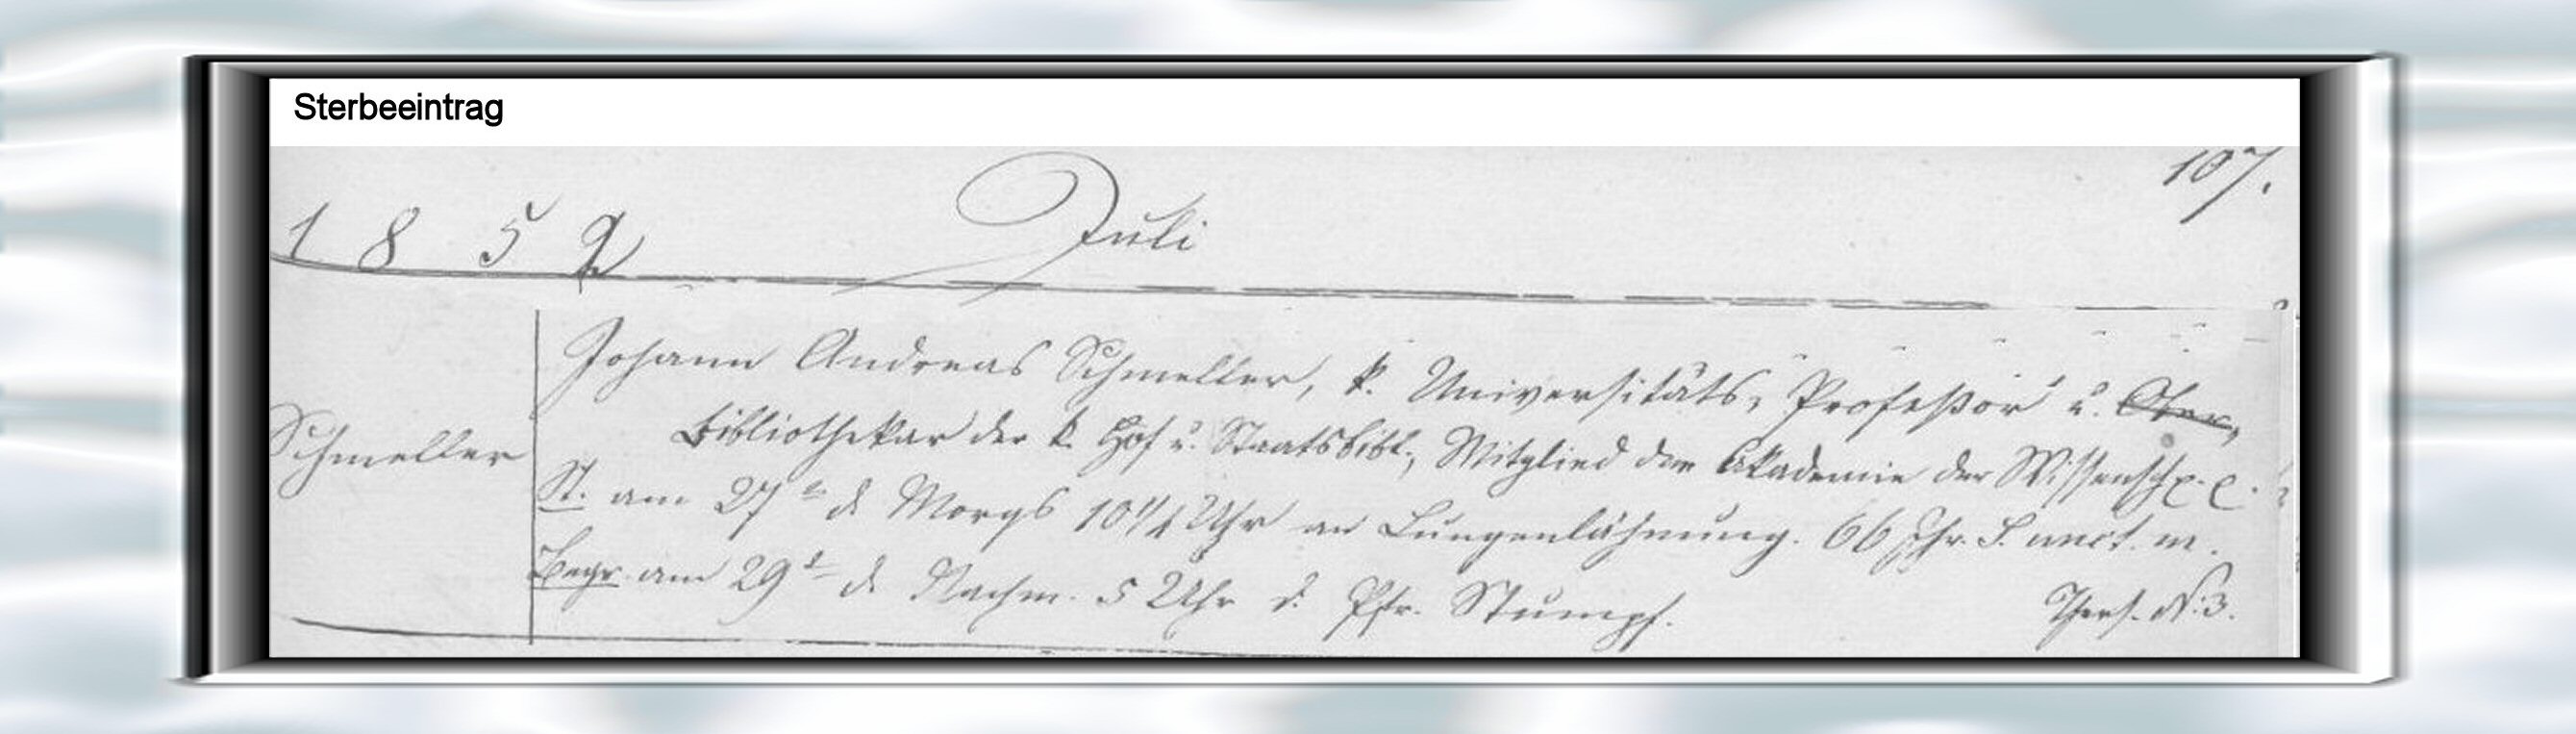 Sterbeeintrag
107.
1852 Juli
Schmeller
Johann Andreas Schmeller, k. Universitäts, Profeßor u. Ober,
Bibliothekar der k. Hof u. Staatsbibl., Mitglied der Akademie der Wissensch.
St. am 27 d. Morgs 10 1/4 Uhr an Lungenlähmung. 66 Jhr. S. unct. m.
Begr. am 29 d. Nachm. 5 Uhr d. Pfr. Stumpf.
Thers. N. 3.